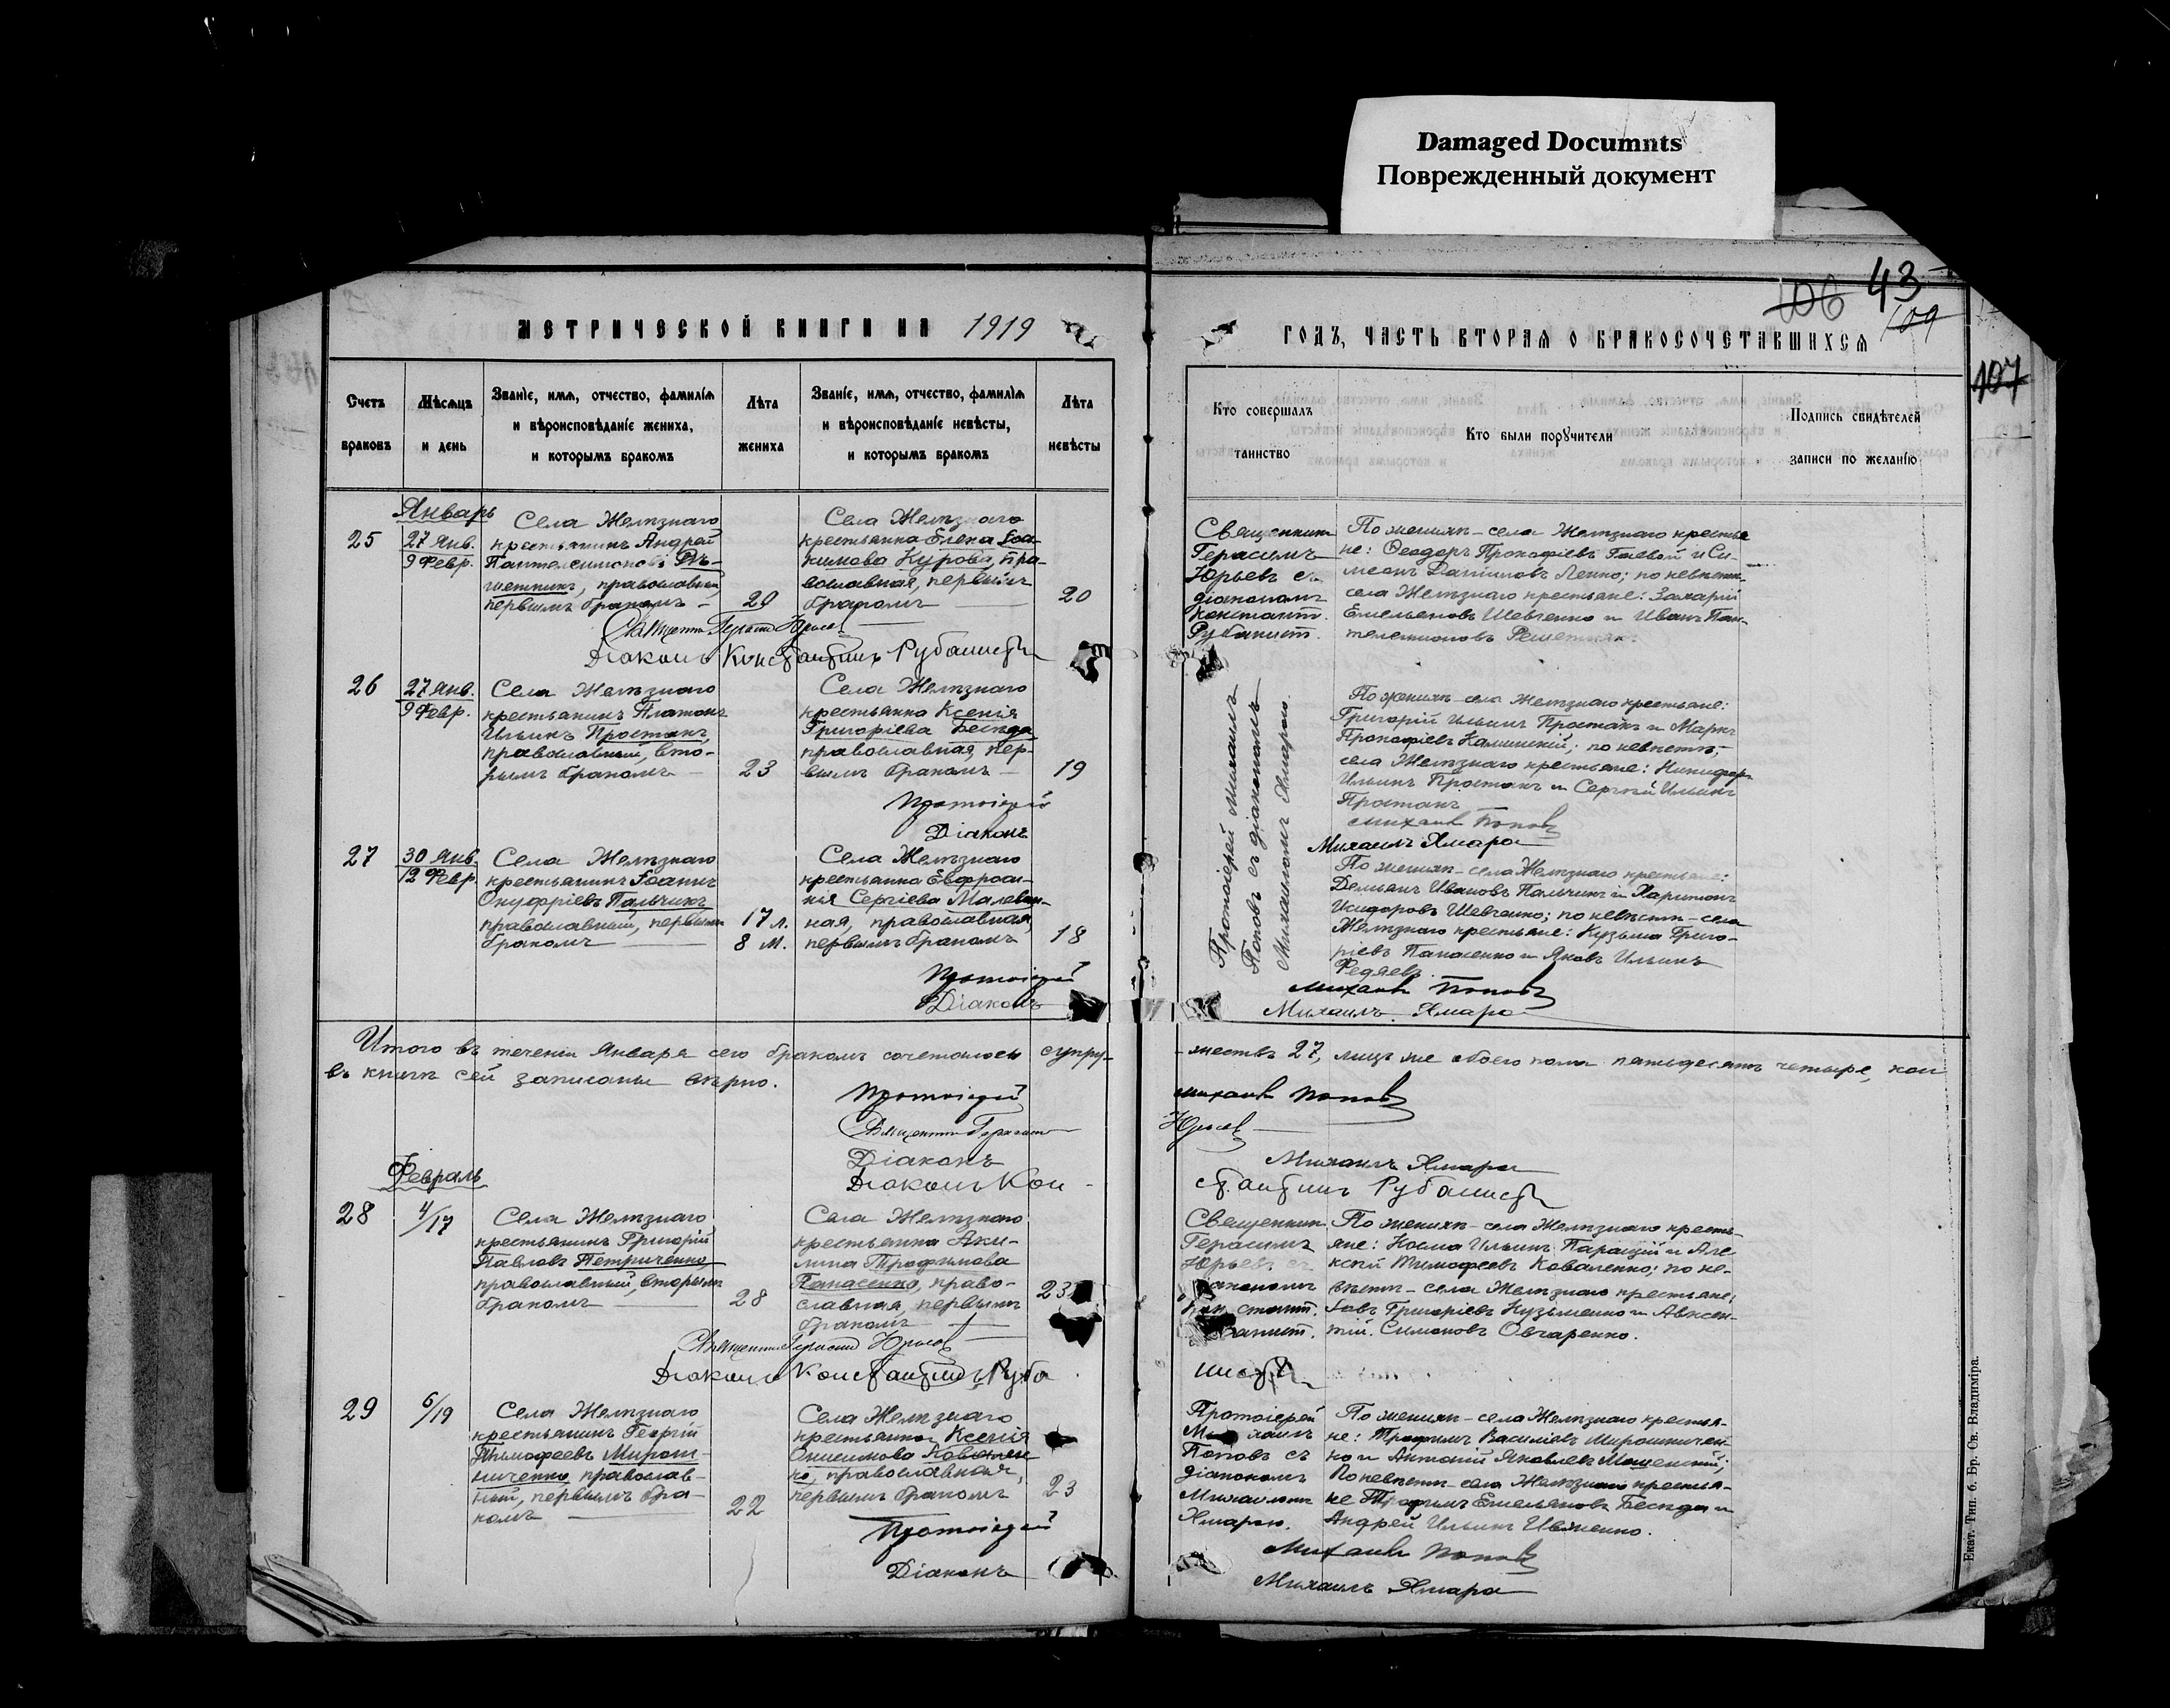 Damaged Documnts
Поврежденный документ
43
106
109
107
МЕТРИЧЕСКОЙ КНИГИ НА 1919
ГОДЪ, ЧАСТЬ ВТОРАЯ О БРАКОСОЧЕТАВШИХСЯ
Счетъ
браковъ
Мѣсяцъ
и день
Званіе, имя, отчество, фамилія
и вѣроисповѣданіе жениха,
и которымъ бракомъ
Лѣта
жениха
Званіе, имя, отчество, фамилія
и вѣроисповѣданіе невѣсты,
и которымъ бракомъ
Лѣта
невѣсты
Кто совершалъ
таинство
Кто были поручители
Подпись свидѣтелей
записи по желанію
Январь
25
27 Янв.
9 Февр.
Села Желѣзнаго
крестьянинъ Андрей
Пантелеимоновъ Рѣ-
шетникъ, православный,
первымъ бракомъ
20
Села Желѣзнаго
крестьянка Елена Іоа-
кимова Курова, пра-
вославная, первымъ
бракомъ
20
Священникъ
Герасимъ
Юрьевъ съ
діакономъ
Констант.
Рубанист.
По женихѣ - села Желѣзнаго крестья
не: Ѳеодоръ Прокофіевъ Гаевой и Си-
меонъ Данииловъ Ленко; по невѣстѣ-
села Желѣзнаго крестьяне: Захарій
Емельяновъ Шевченко и Иванъ Пан-
телеимоновъ Решетникъ.
Священникъ Герасимъ Юрьевъ
Діаконъ Константинъ Рубанистъ
26
27 Янв.
9 Февр.
Села Желѣзнаго
крестьянинъ Платонъ
Ильинъ Простакъ,
православный, вто-
рымъ бракомъ
23
Села Желѣзнаго
крестьянка Ксенія
Григоріева Бесѣда,
православная, пер-
вымъ бракомъ
19
Протоіерей Михаилъ
Поповъ съ діакономъ
Михаиломъ Хмарою.
По женихѣ села Желѣзнаго крестьяне:
Григорій Ильинъ Простакъ и Маркъ
Прокофіевъ Калинскій; по невѣстѣ;-
села Желѣзнаго крестьяне: Никифоръ
Ильинъ Простакъ и Сергѣй Ильинъ
Простакъ
Протоіерей Михаилъ Поповъ
Діаконъ Михаилъ Хмара
27
30 Янв.
12 Февр.
Села Желѣзнаго
крестьянинъ Іоаннъ
Онуфріевъ Пальчикъ
православный, первымъ
бракомъ
17 л.
8 м.
Села Желѣзнаго
крестьянка Евфроси-
нія Сергіева Малеван-
ная, православная,
первымъ бракомъ
18
По женихѣ - села Желѣзнаго крестьяне:
Демьянъ Ивановъ Пальчикъ и Харитонъ
Исидоровъ Шевченко; по невѣстѣ - села
Желѣзнаго крестьяне: Кузьма Григо-
ріевъ Панасенко и Яковъ Ильинъ
Федяевъ.
Протоіерей Михаилъ Поповъ
Діаконъ Михаилъ Хмара
Итого въ теченіи Января сего бракомъ сочеталось супру-
-жествъ 27, лицъ же обоего пола пятьдесятъ четыре, кои
въ книгѣ сей записаны вѣрно.
Протоіерей Михаилъ Поповъ
Священникъ Герасимъ Юрьевъ
Діаконъ Михаилъ Хмара
Діаконъ Константинъ Рубанистъ
Февраль
28
4/17
Села Желѣзнаго
крестьянинъ Григорій
Павловъ Петриченко
православный, вторымъ
бракомъ
28
Села Желѣзнаго
крестьянка Аки-
лина Трофимова
Панасенко, право-
славная, первымъ
бракомъ
23
Священник
Герасимъ
Юрьевъ съ
діакономъ
Констант.
По женихѣ - села Желѣзнаго кресть-
яне: Косма Ильинъ Парацій и Але
ксѣй Тимофеевъ Коваленко; по не-
вѣстѣ - села Желѣзнаго крестьяне:
Савъ Григоріевъ Кузьменко и Авксен-
тій Симоновъ Овчаренко.
Священникъ Герасимъ Юрьевъ
Діаконъ Константинъ Руба
нистъ
29
6/19
Села Желѣзнаго
крестьянинъ Георгій
Тимофеевъ Мирош-
ниченко, православ-
ный, первымъ бра-
комъ
22
Села Желѣзнаго
крестьянка Ксенія
Онисимова Ковален-
ко, православная,
первымъ бракомъ
23
Протоіерей
Михаилъ
Поповъ съ
діакономъ
Михаиломъ
Хмарою.
По женихѣ - села Желѣзнаго крестья-
не: Трофимъ Василіевъ Мирошничен-
ко и Антоній Яковлевъ Мошенскій;
По невѣстѣ - села Желѣзнаго крестья-
не Трофимъ Емельяновъ Бесѣда и
Андрей Ильинъ Ивженко.
Протоіерей Михаилъ Поповъ
Діаконъ Михаилъ Хмара
Екат. Тип. б. Бр. Св. Владиміра.